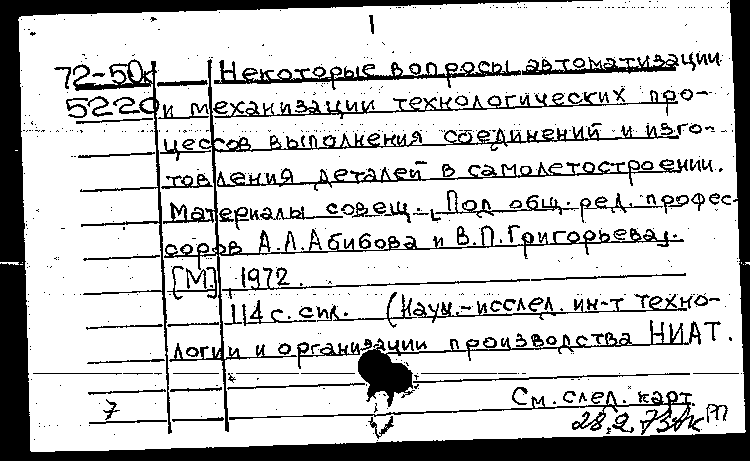 72-50к Некоторые вопросы автоматизации
5220 и механизации технологических про-
цессов выполнения соединений и изго-
товления деталей в самолетостроении.
Материалы совещ. [Под общ. ред. професс-
соров А.Л.Абибова и В.П.Григорьева].
[М], 1972.
114 с. спк. (Научн.-исслед. ин-т техно-
логии и организации производства НИАТ.
См. след. карт
7 28.2.73